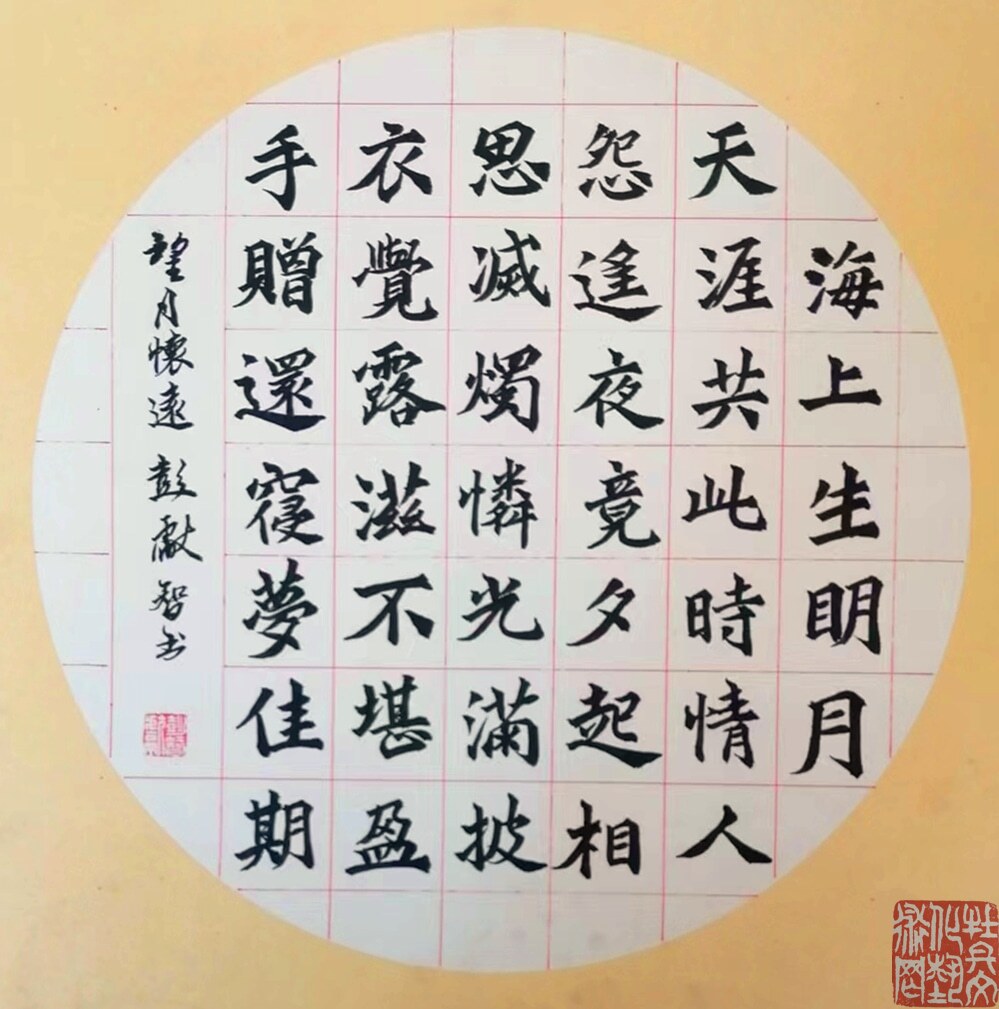 海上生明月
天涯共此時情人
怨遥夜竟夕起相
思滅燭憐光滿披
衣覺露滋不堪盈
手贈還寢夢佳期
望月懷遠 彭獻智书
牡丹文化藝術网